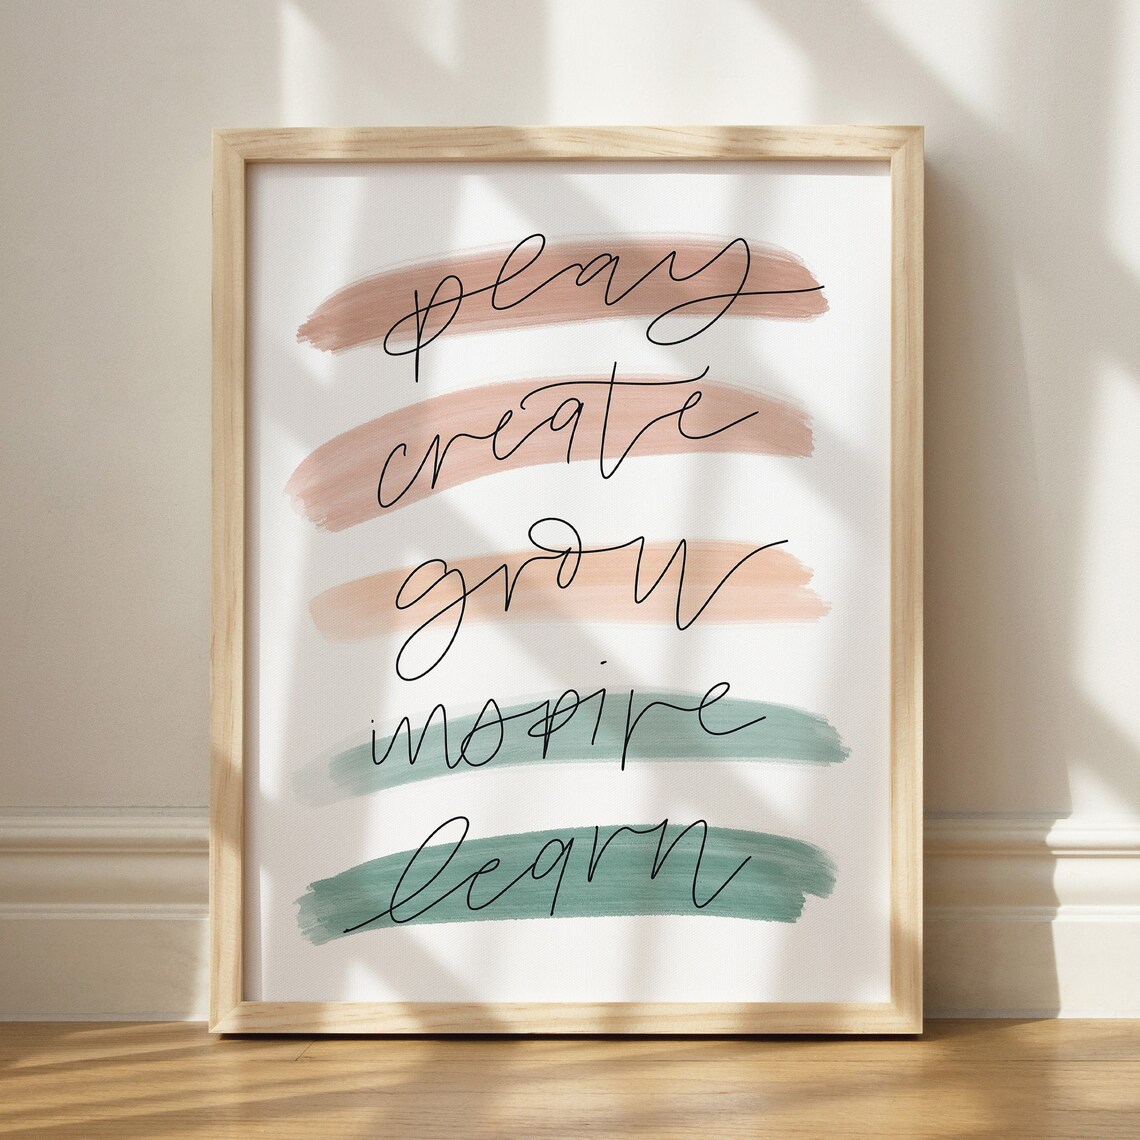 play
create
grow
inspire
learn